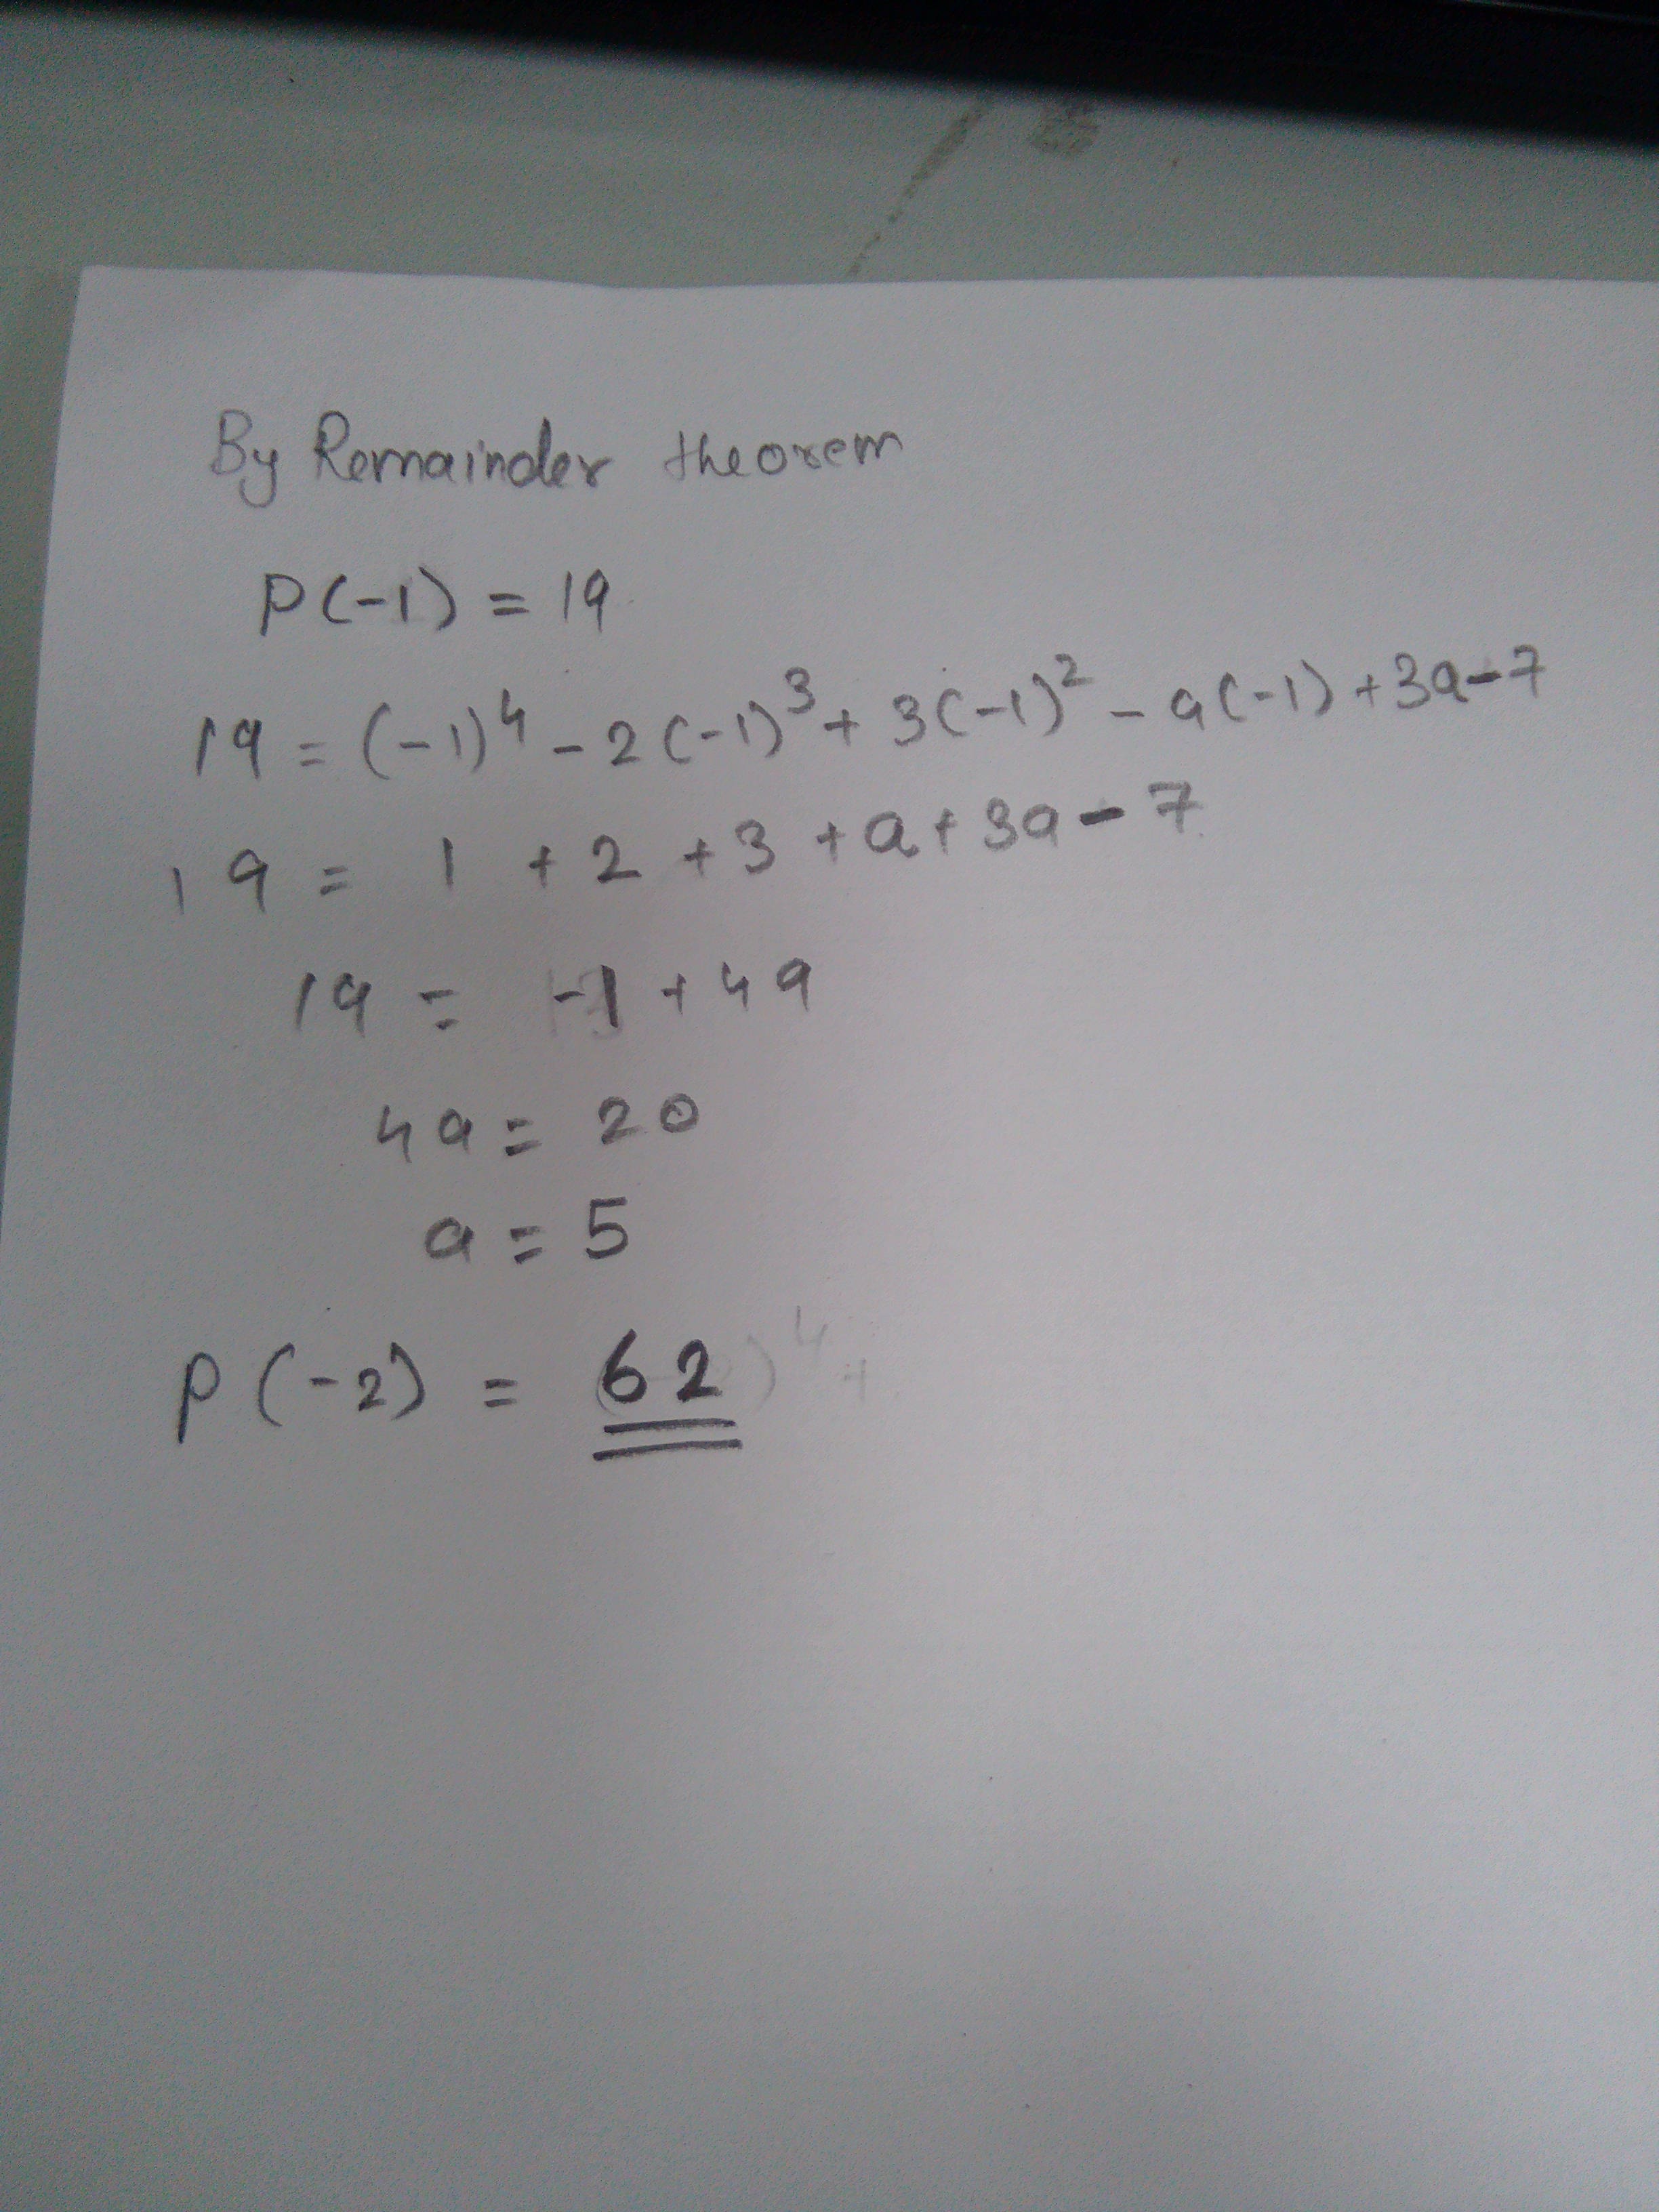 By Remainder theorem
P(-1) = 19
19 = (-1)⁴ - 2(-1)³ + 3(-1)² - a(-1) + 3a - 7
19 = 1 + 2 + 3 + a + 3a - 7
19 = -1 + 4a
4a = 20
a = 5
P(-2) = 62